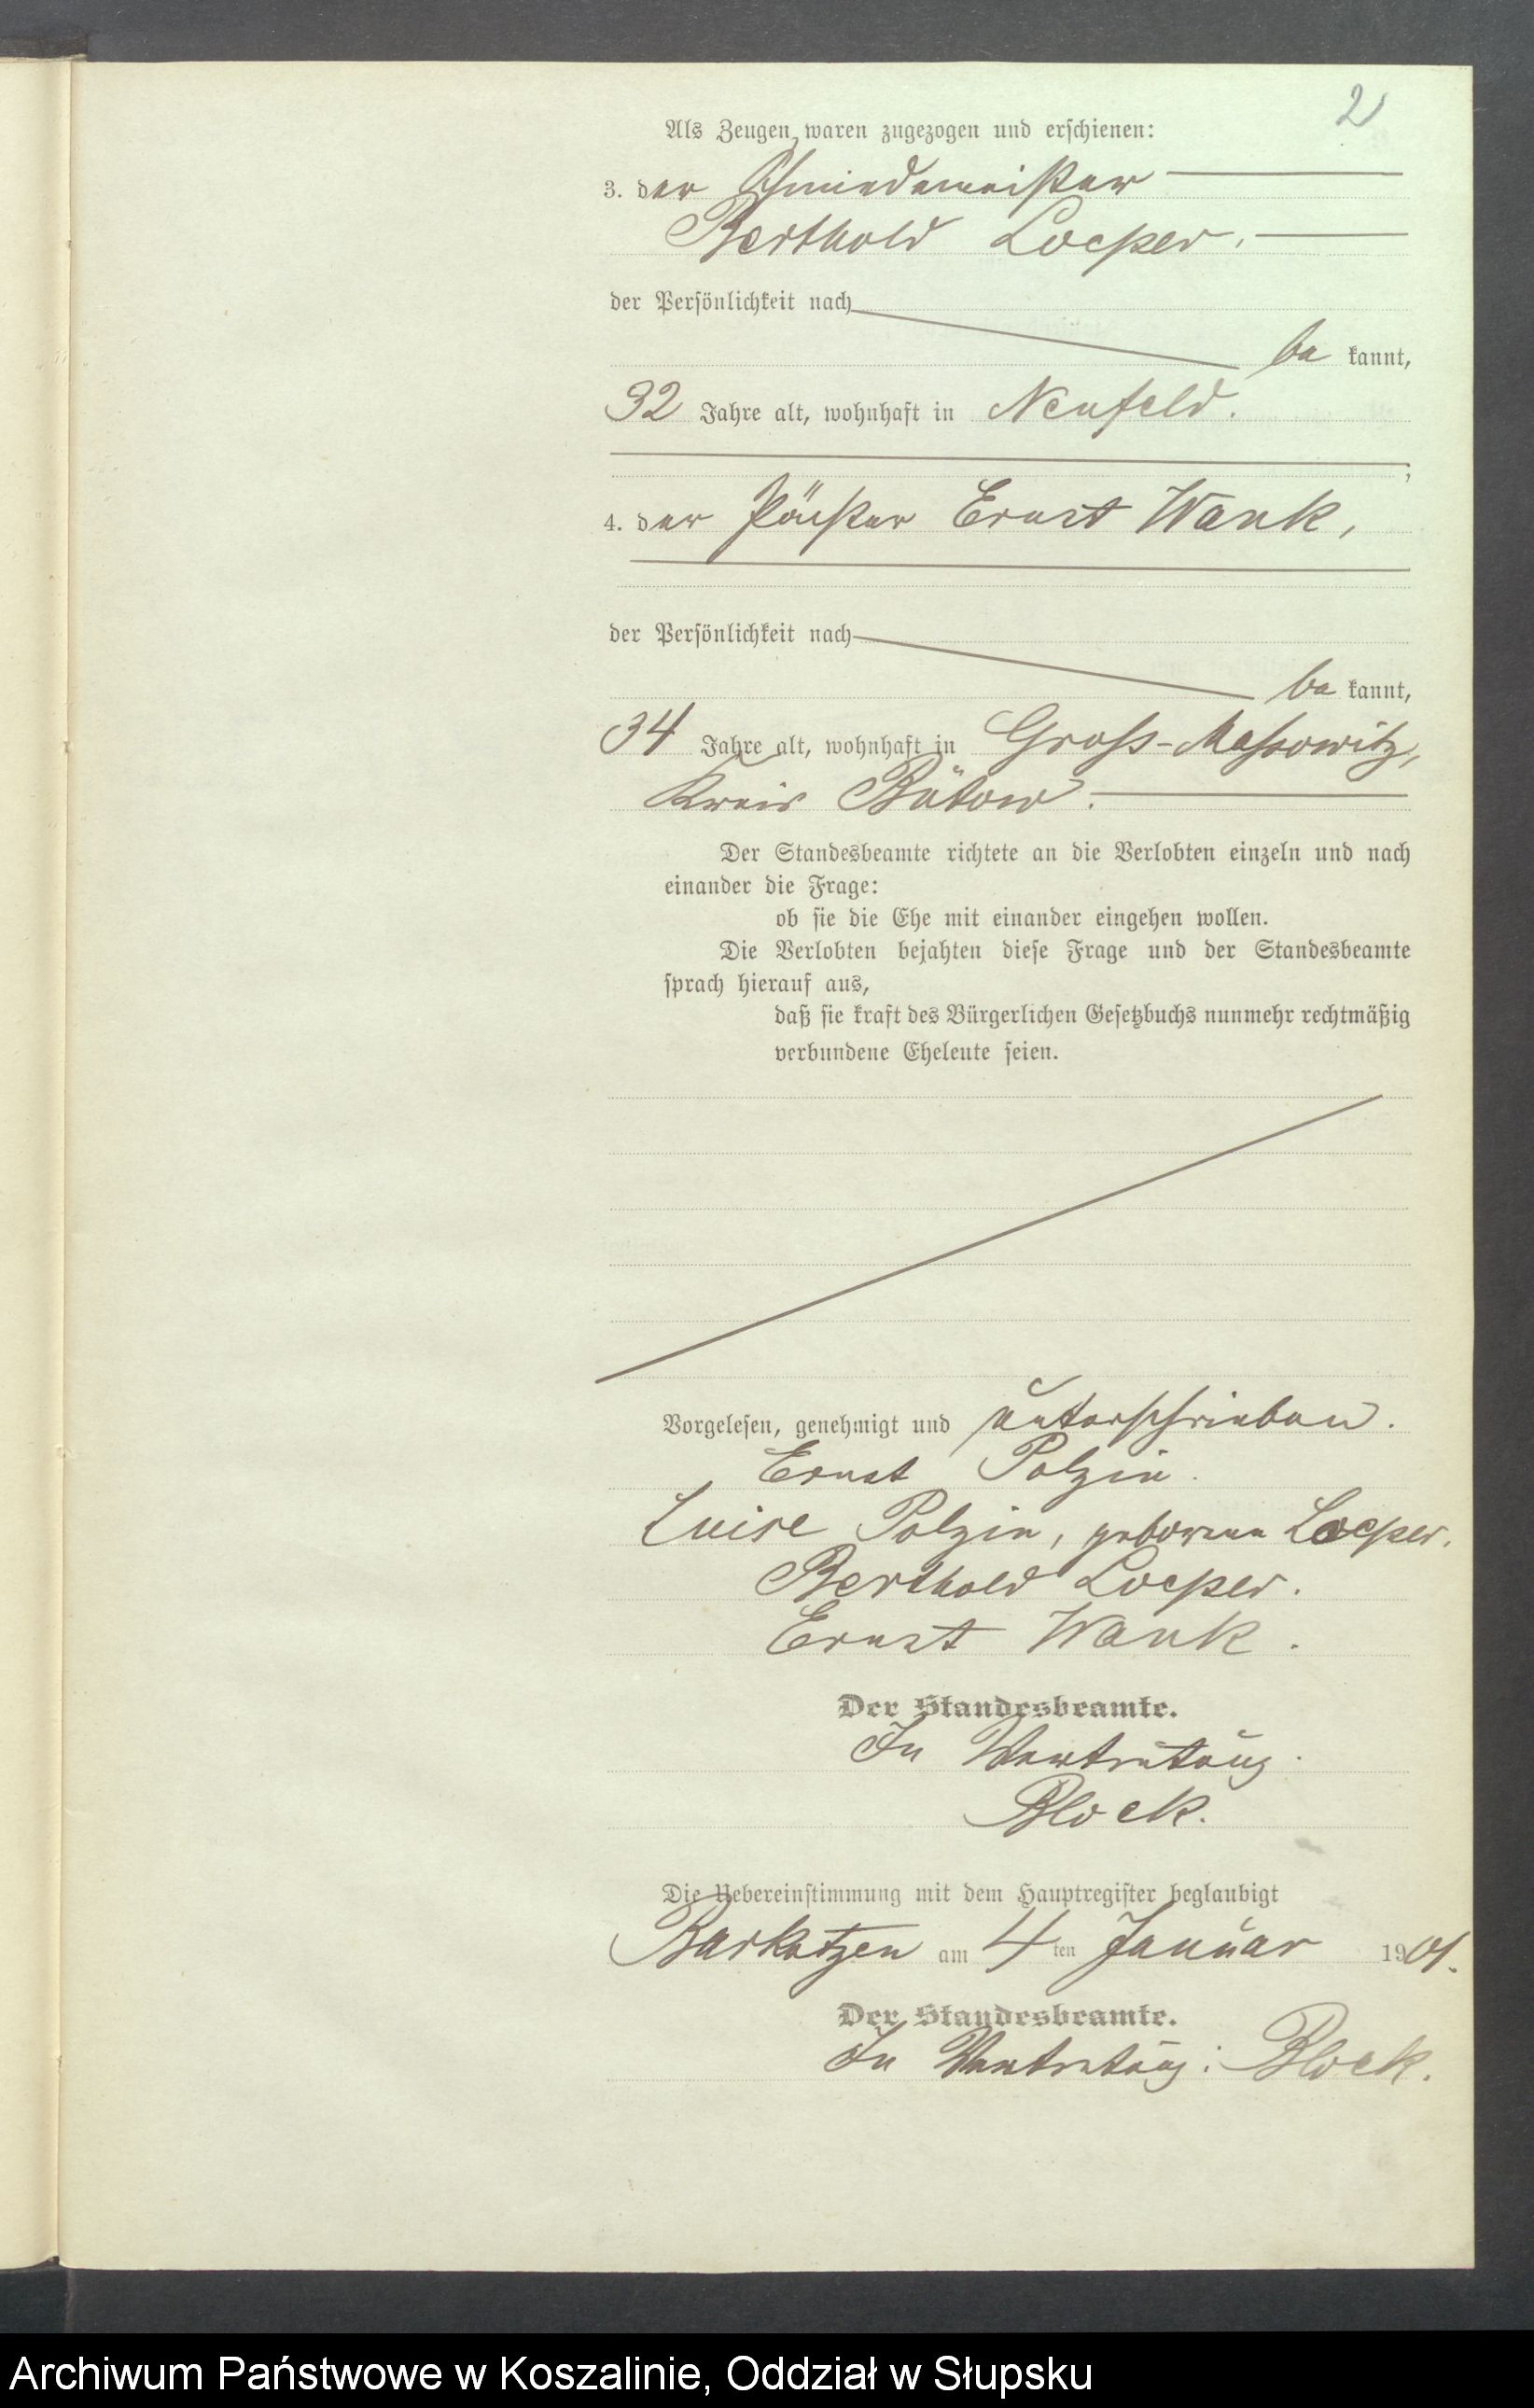 2
Als Zeugen waren zugezogen und erschienen:
3. der Schmiedemeister
Berthold Loeper,
der Persönlichkeit nach
be kannt,
32 Jahre alt, wohnhaft in Neufeld.
;
4. der Pächter Ernst Wank,
der Persönlichkeit nach
be kannt,
34 Jahre alt, wohnhaft in Gross-Massowitz,
Kreis Bütow.
Der Standesbeamte richtete an die Verlobten einzeln und nach
einander die Frage:
ob sie die Ehe mit einander eingehen wollen.
Die Verlobten bejahten diese Frage und der Standesbeamte
sprach hierauf aus,
daß sie kraft des Bürgerlichen Gesetzbuchs nunmehr rechtmäßig
verbundene Eheleute seien.
Vorgelesen, genehmigt und unterschrieben.
Ernst Polzin.
Luise Polzin, geborene Loeper.
Berthold Loeper.
Ernst Wank.
Der Standesbeamte.
In Vertretung.
Block.
Die Uebereinstimmung mit dem Hauptregister beglaubigt
Barkotzen am 4 ten Januar 1901.
Der Standesbeamte.
In Vertretung: Block.
Archiwum Państwowe w Koszalinie, Oddział w Słupsku